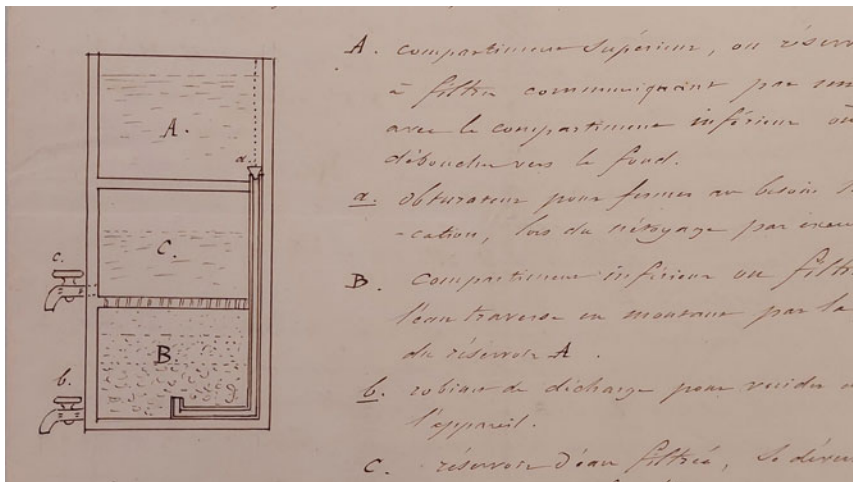 A. compartiment supérieur, ou réserv
à filtrer communiquant par un
avec le compartiment inférieur où
débouche vers le fond.
a. obturateur pour fermer au besoin
-cation, lors du nétoyage par exem
B. Compartiment inférieur ou filtre
l'eau traverse en montant par la
du réservoir A.
b. robinet de décharge pour vuider
l'appareil.
C. réservoir d'eau filtrée, se déver
A.
a.
C.
c.
B
b.